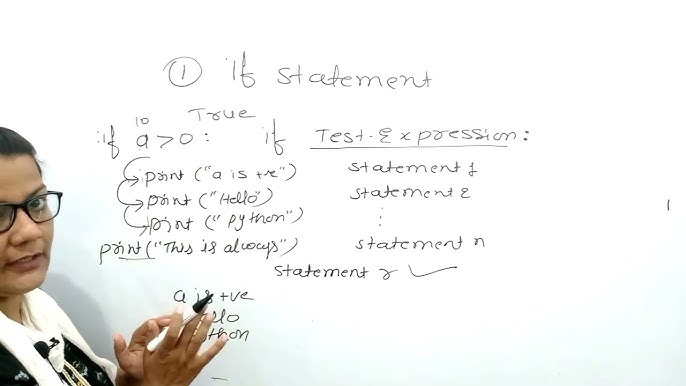 ① If statement
10 True
if a>0: if Test-Expression:
print ("a is +ve") statement 1
print ("Hello") statement 2
print ("python") ⋮
print ("This is always") statement n
statement r ✓
a is +ve